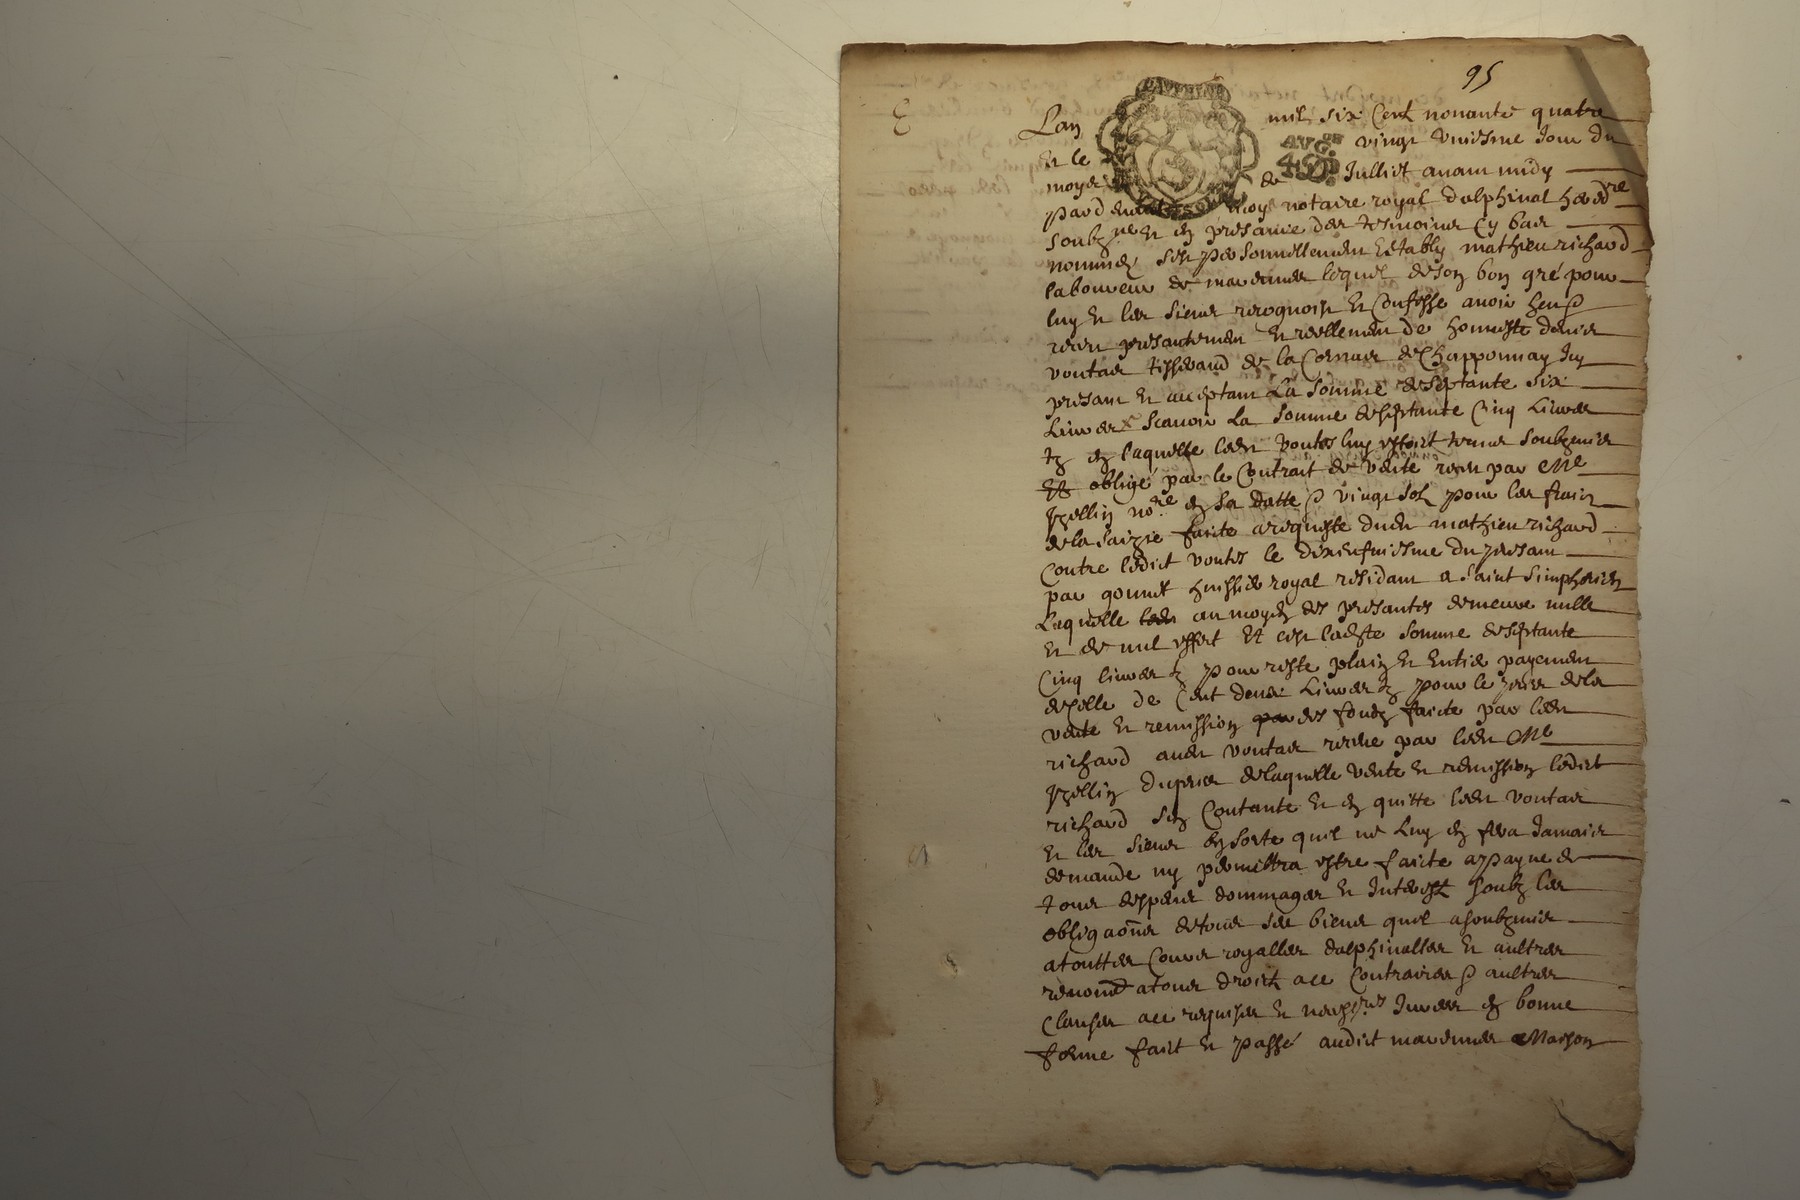 95
Lan mil six Cent nonante quatre
Et le vingt uniesme Jour du
moys de Juillet avant midy
pardevant moy notaire royal dalphinal hered.re
soubz.ne et en presance des tesmoins cy bas
nommez sest personnellement Estably mathieu richard
laboureur de marennes lequel de son bon gré pour
luy et les siens recognoist et Confesse avoir heu &
receu presantement et reellement de honneste
tisserand de la de Chapponnay Icy
presant et acceptant La somme de septante six
Livres Scavoir La somme de septante Cinq Livres
en laquelle led.t luy estoict tenu soubzmis
Et obligé par le Contrait de vente receu par Me
no.re en sa datte & vingt sol pour les frais
de la saizie faite a requeste dud.t mathieu richard
Contre ledict le dixneufviesme du presant
par huissier royal residant a Saint Simphorien
Laquelle au moyen des presantes demeure nulle
et de nul effect Et cest ladicte somme de septante
Cinq livres pour reste plain et Entier payement
de celle de Cent deux Livres pour le prix de la
vente et remission des fondz faicte par led.t
richard aud.t receue par led.t Me
Du prix de laquelle vente et remission ledict
richard sen Contante et en quitte led.t
et les siens en sorte quil ne Luy en fera Jamais
demande ny permettra estre faicte a payne de
tous despens dommages et Interest soubz les
obliga.ons de tous ses biens quil a soubzmis
a touttes Cours royalles dalphinalles et aultres
renoncé a tous droictz a ce Contraires & aultres
Clauses a ce requises et en bonne
forme faict et passé audict marennes Maison